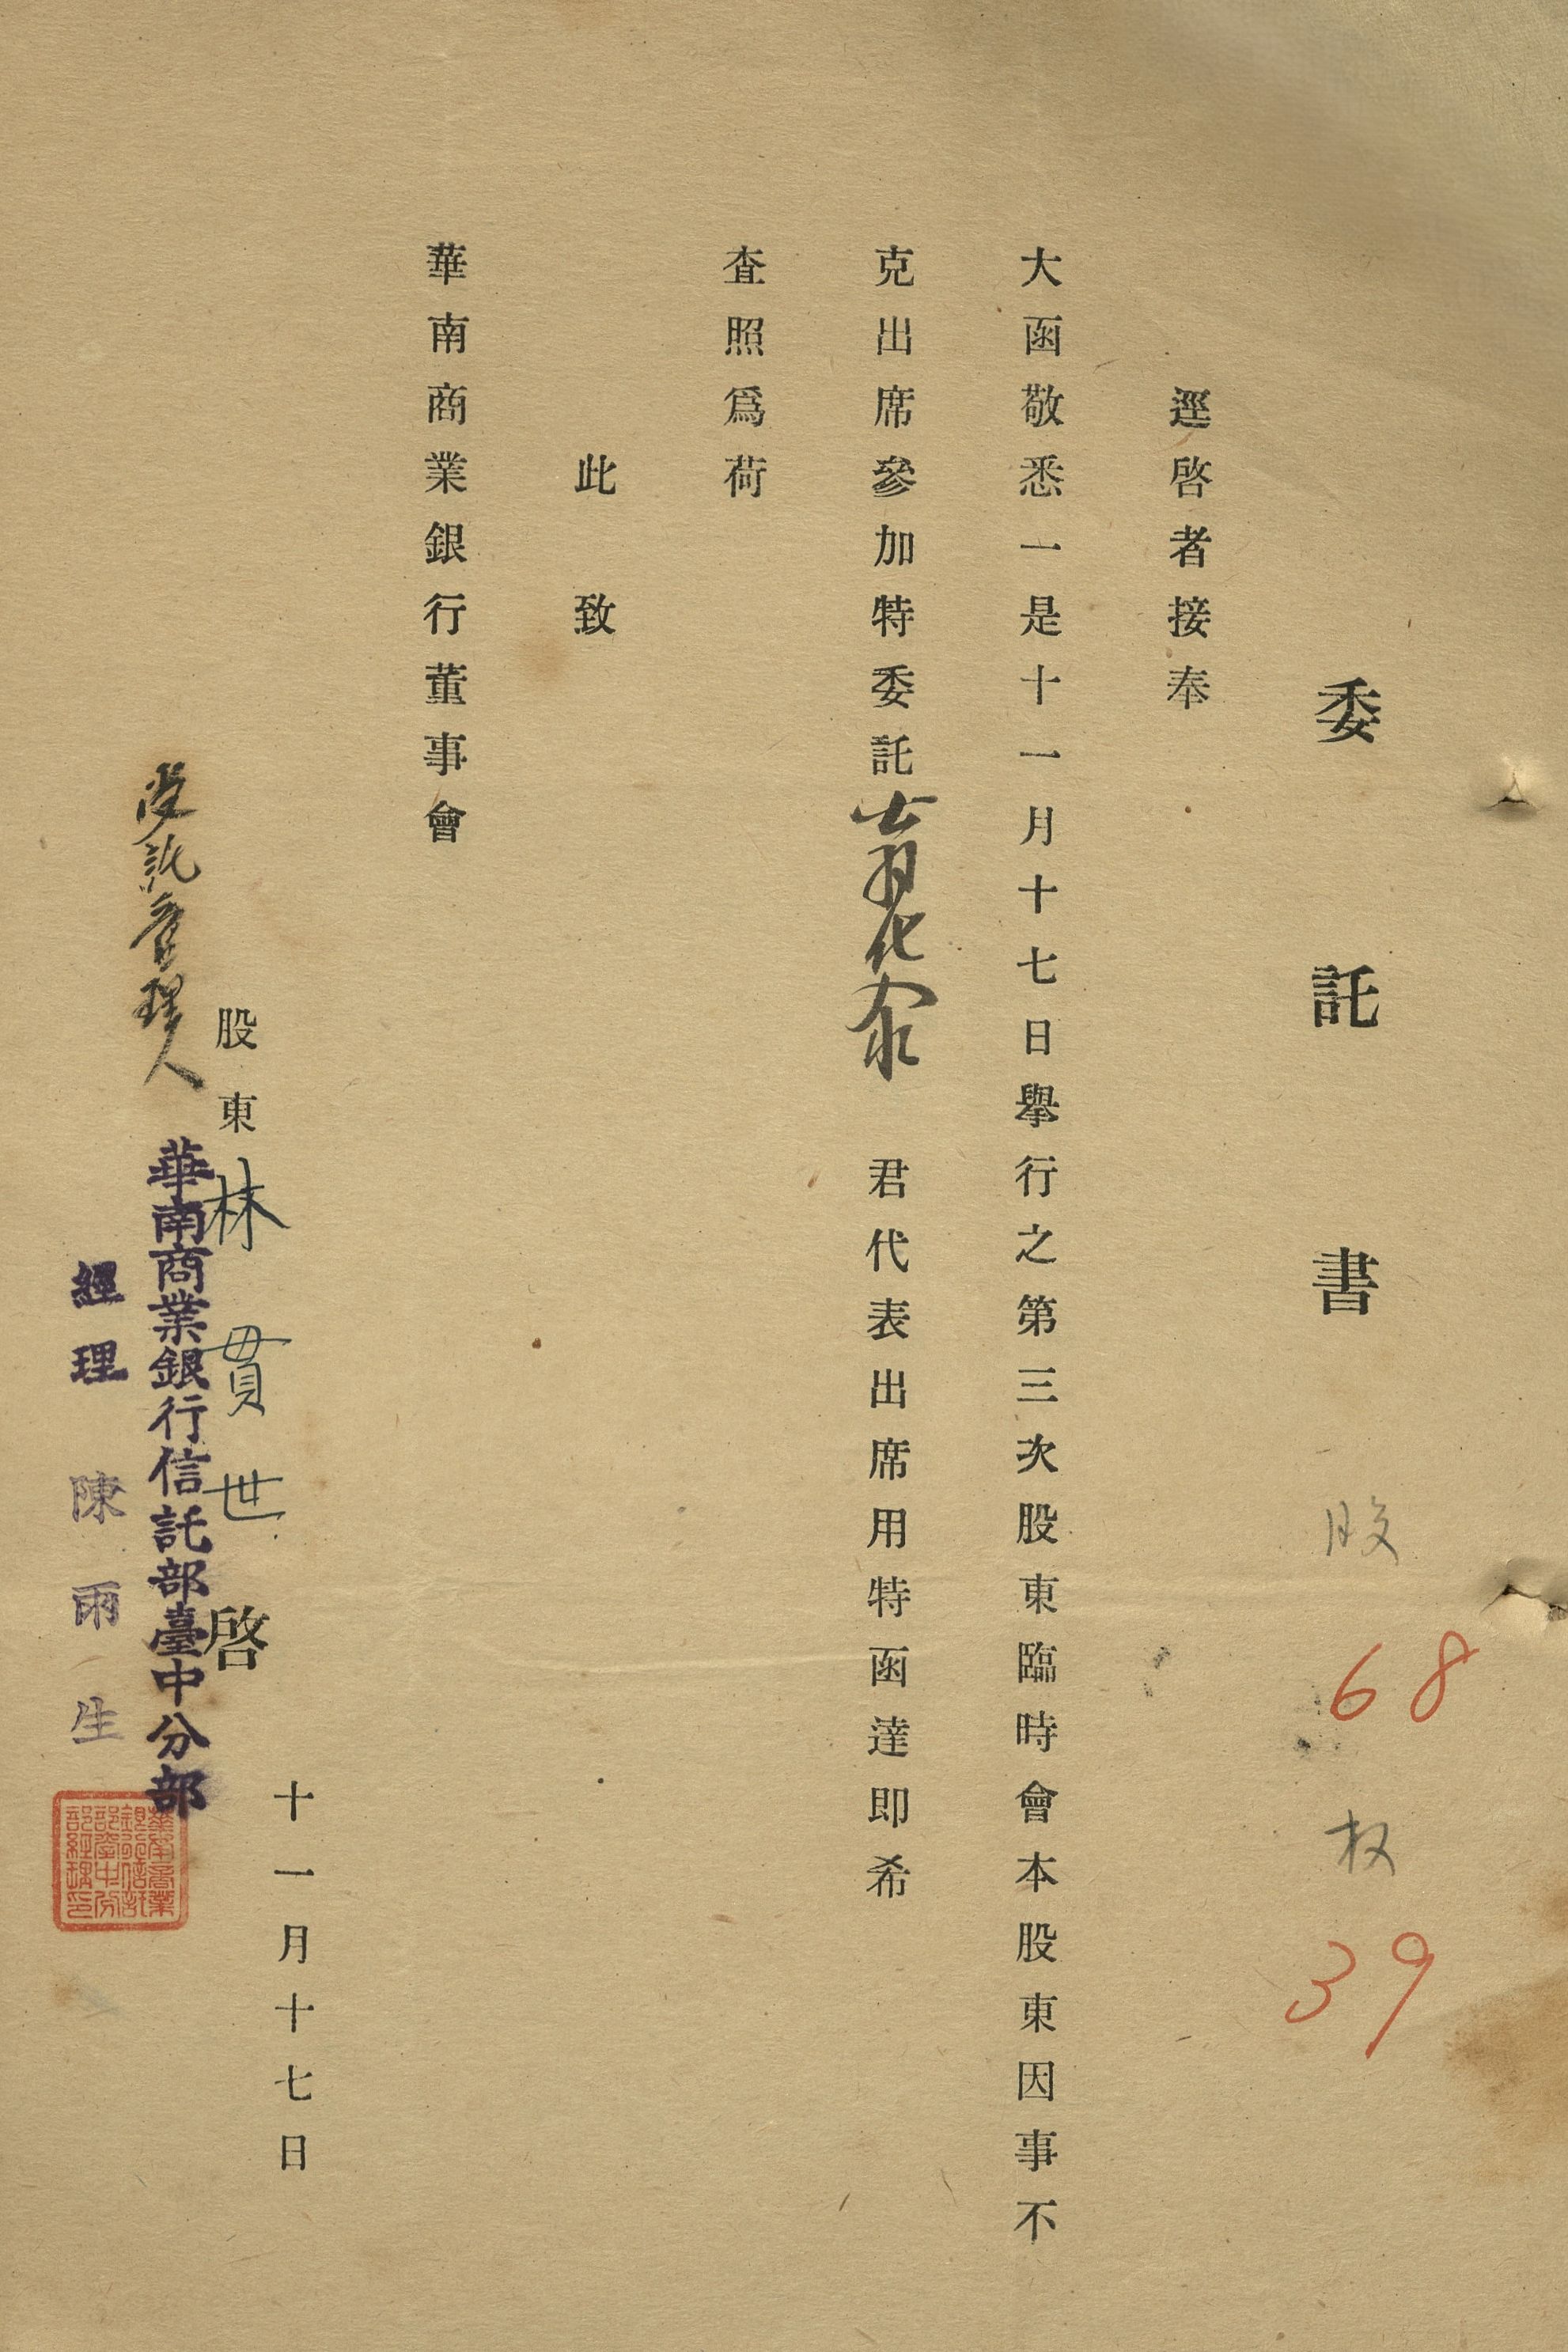 委託書 股 68 权 39
逕啓者接奉
大函敬悉一是十一月十七日擧行之第三次股東臨時會本股東因事不
克出席參加特委託 君代表出席用特函達即希
査照爲荷
此致
華南商業銀行董事會
十一月十七日
股東 林貫世 啓
受託管理人 華南商業銀行信託部臺中分部
經理 陳雨生
華南商業
銀行信託
部臺中分
部經理印